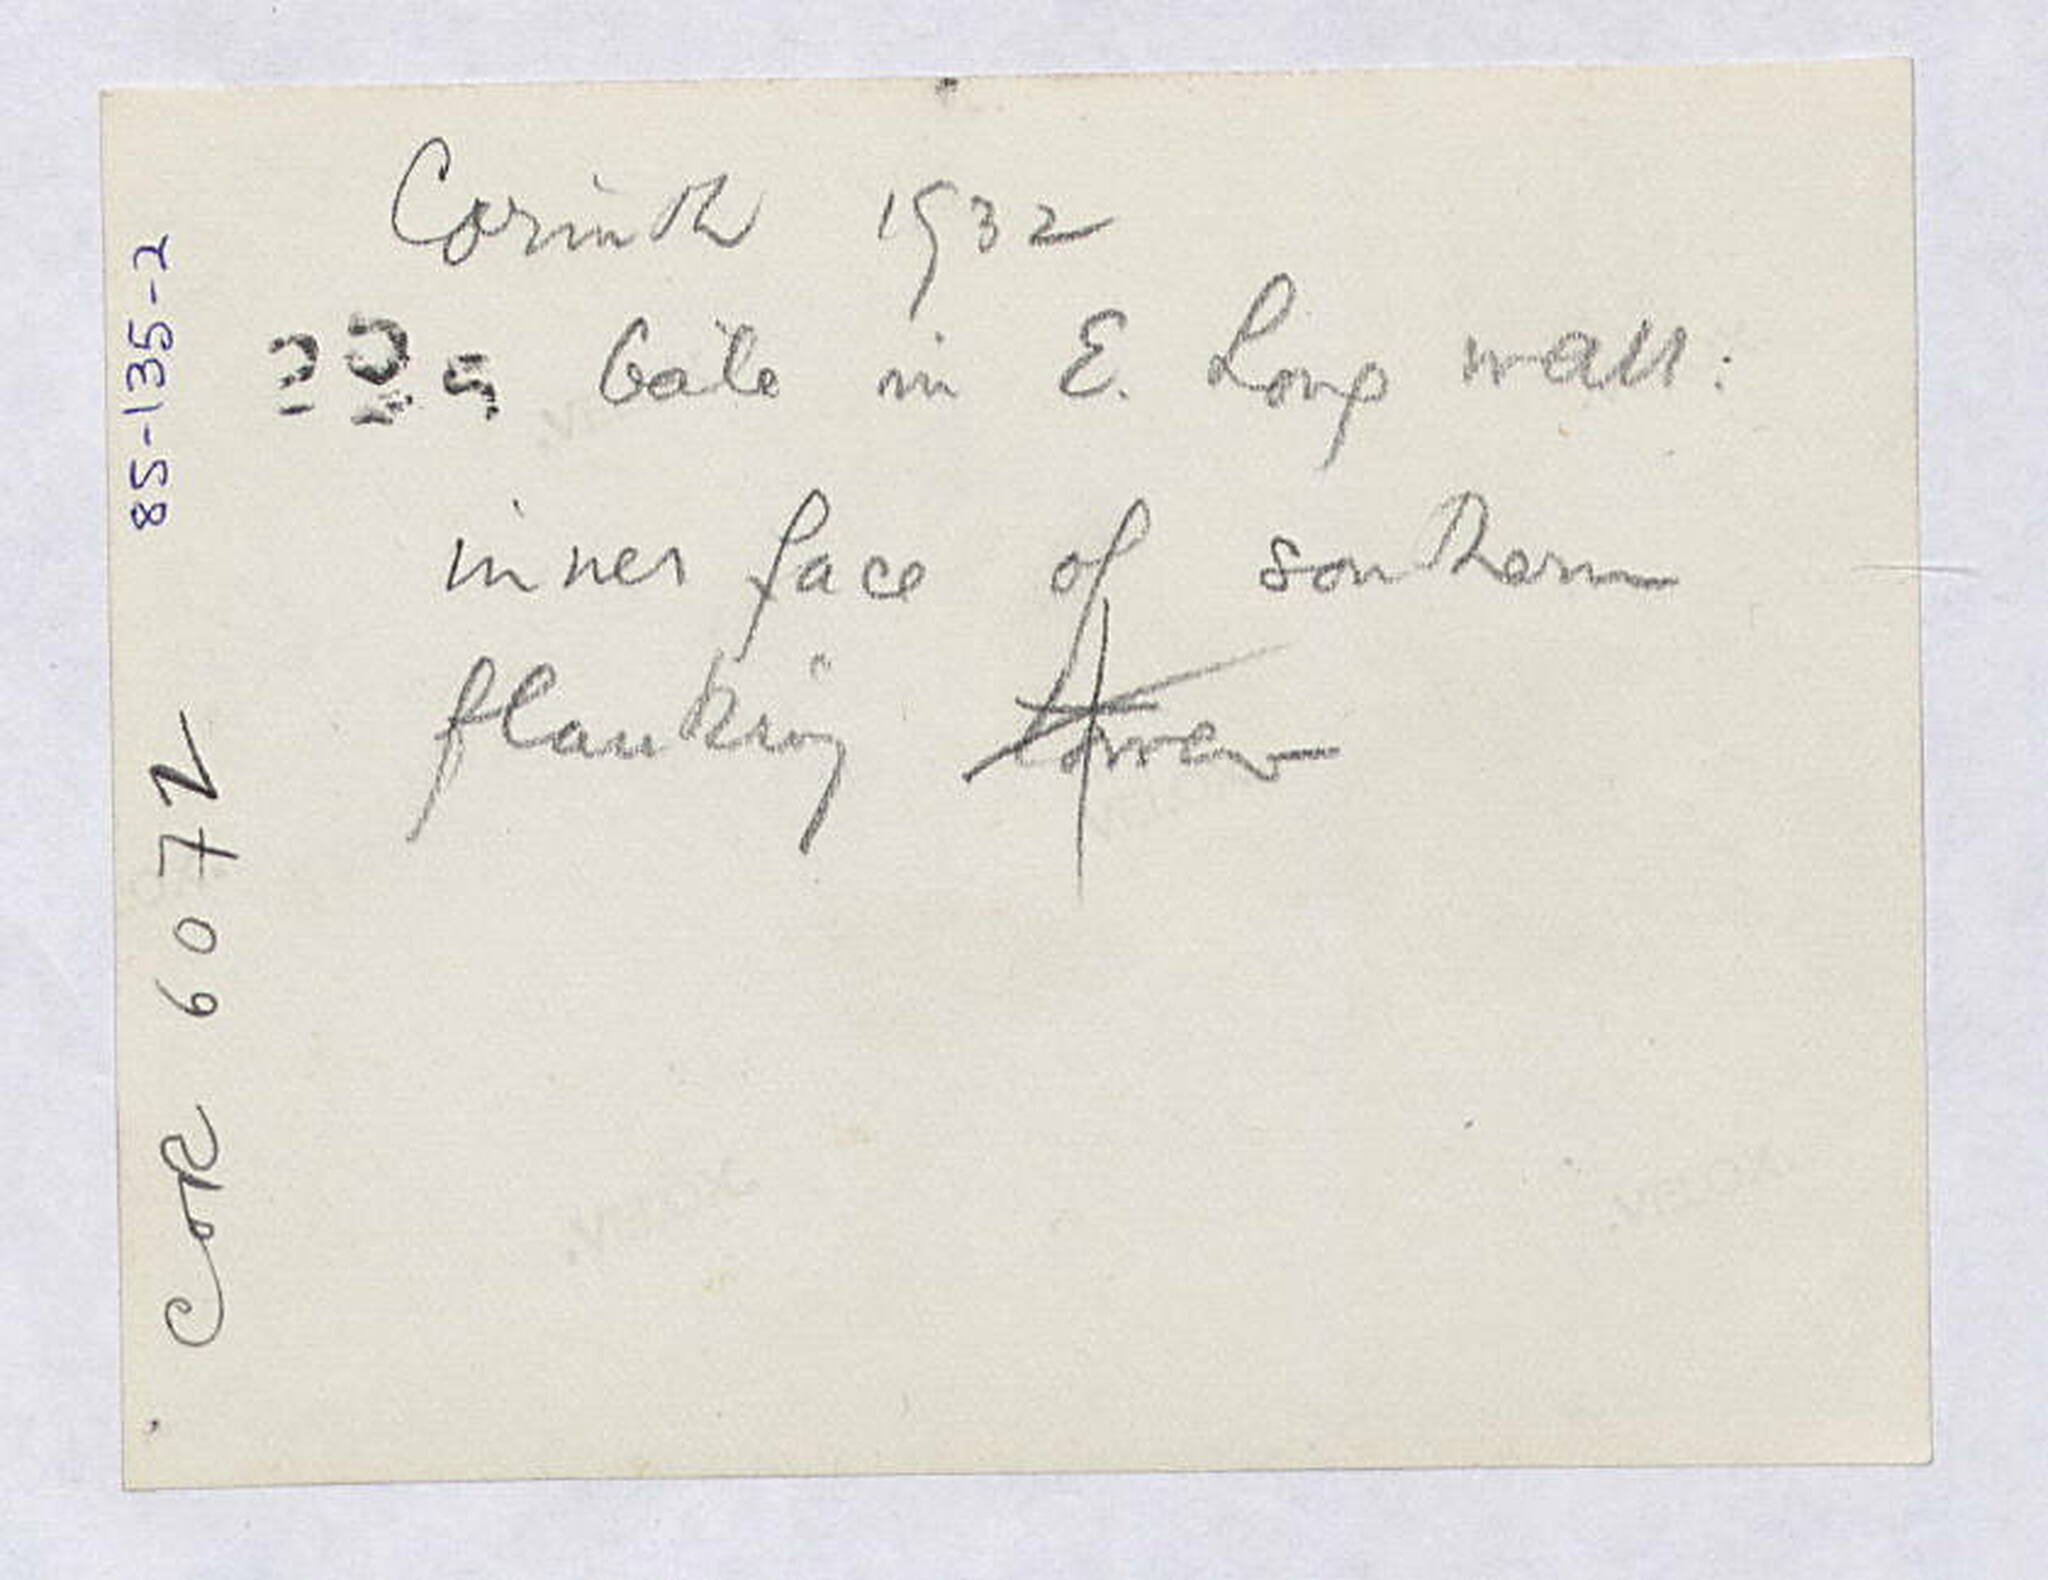 Corinth 1932
Gate in E. Long wall:
inner face of southern
flanking tower
85-135-2
COR 6072
VELOX
VELOX
VELOX